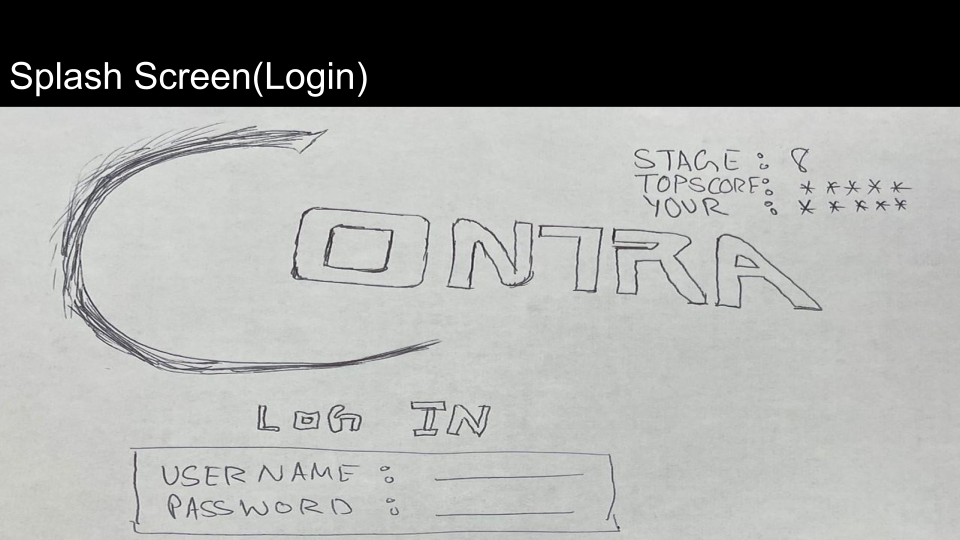 Splash Screen(Login)
STAGE : 8
TOPSCORE: * * * * *
YOUR : * * * * *
CONTRA
LOG IN
USERNAME :
PASSWORD :